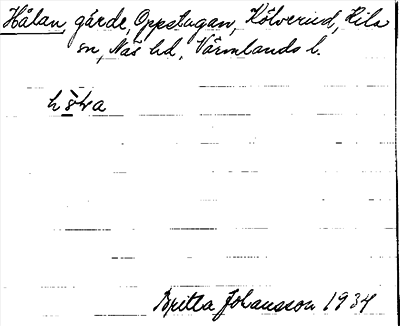 Hålan, gärde, Oppstugan, Kölverud, Kila
sn, Näs hd, Värmlands l.
Britta Johansson 1934